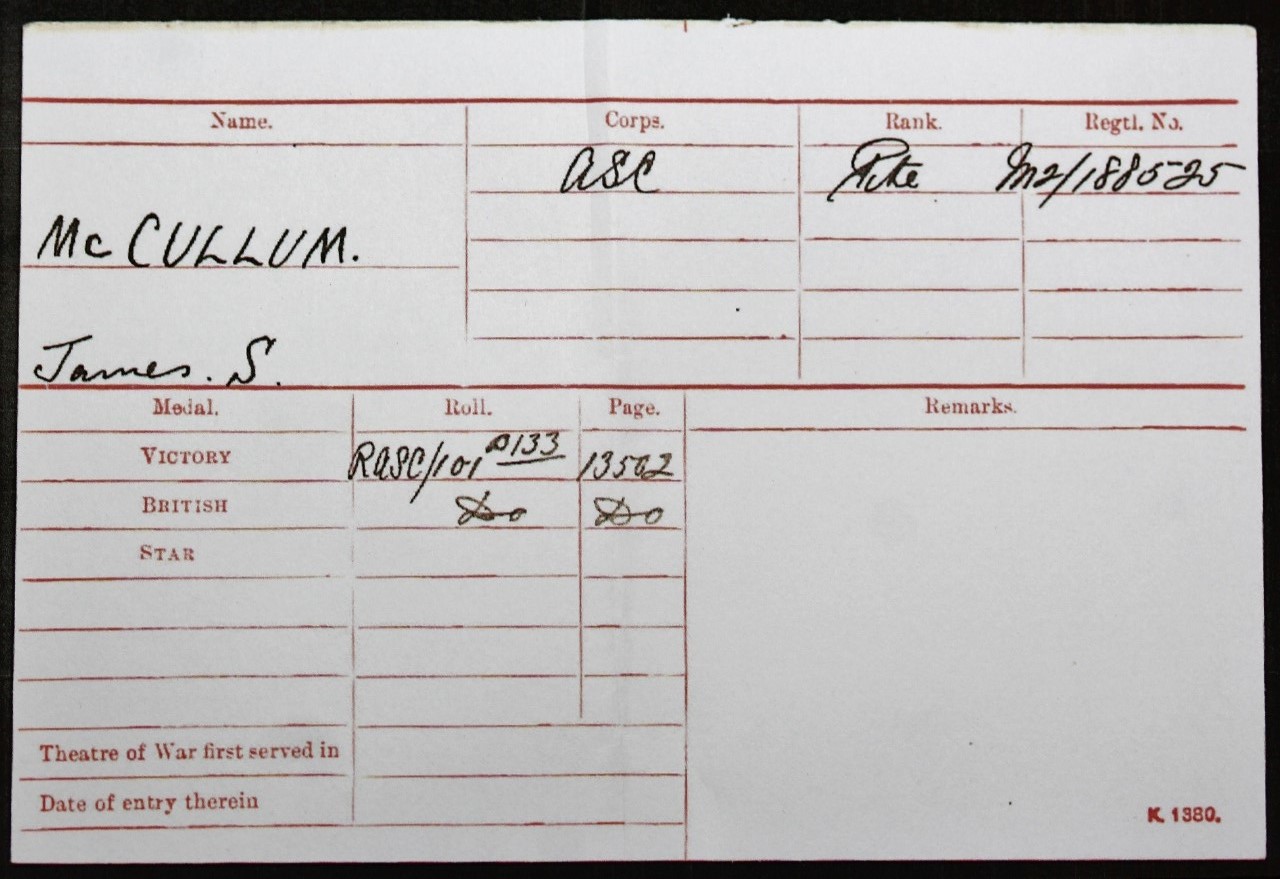 Name. Corps. Rank. Regtl. No.
ASC Pte M2/188525
McCULLUM.
James. S.
Medal. Roll. Page. Remarks.
VICTORY RASC/101 B133 13502
BRITISH Do Do
STAR
Theatre of War first served in
Date of entry therein
K. 1380.